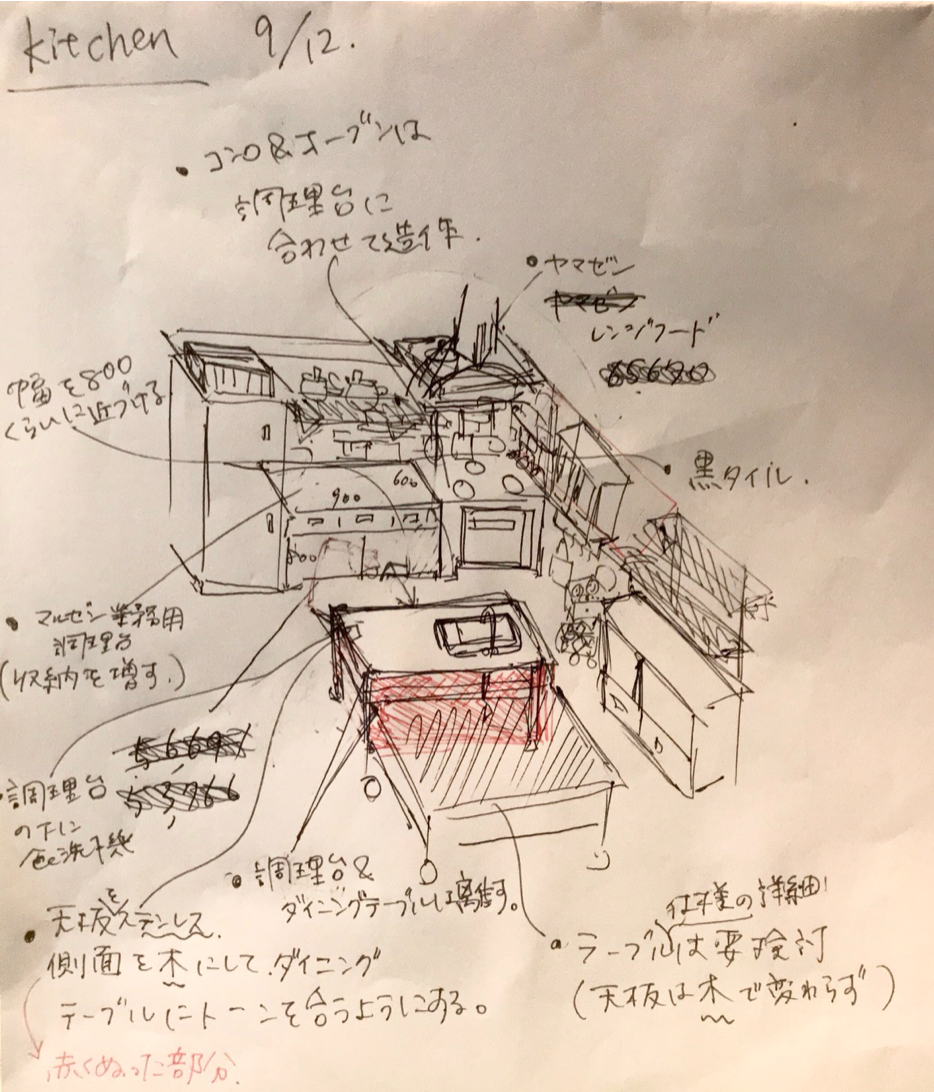 kitchen 9/12.
・コンロ&オーブンは
調理台に
合わせて造作.
・ヤマゼン
レンジフード
巾幅を800
くらいに近づける
・黒タイル.
600
900
800
・マルゼン業務用
調理台
(収納を増す.)
・調理台
の下に
食洗機
・調理台&
ダイニングテーブルは離す。
・天板をステンレス.
側面を木にして.ダイニング
テーブルにトーンを合うようにする。
赤くぬった部分.
仕様の詳細!
・テーブルは要検討
(天板は木で変わらず)